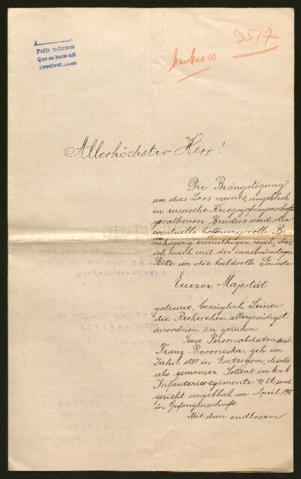 Pedir informes
3517
Allerhöchster Herr!
Die Beängstigung
um das Loos meines, angeblich
in russische Kriegsgefangenschaft
gerathenen Bruders und die
eventuelle hoffnungsvolle
ermuthigen mich, dass
ich mich mit der innbrünstigen
Bitte an die huldvolle Gnade
Euerer Majestät
getraue, bezüglich Seiner
die Recherchen allergnädigst
anordnen zu geruhen.
Seine Personaldaten sind:
Franz geb. im
Jahre in Esztergom, diente
als gemeiner Soldat im k.u.k.
Infanterieregimente № 26 und
geriet angeblich im April 1915
in Gefangenschaft.
Mit dem endlosen